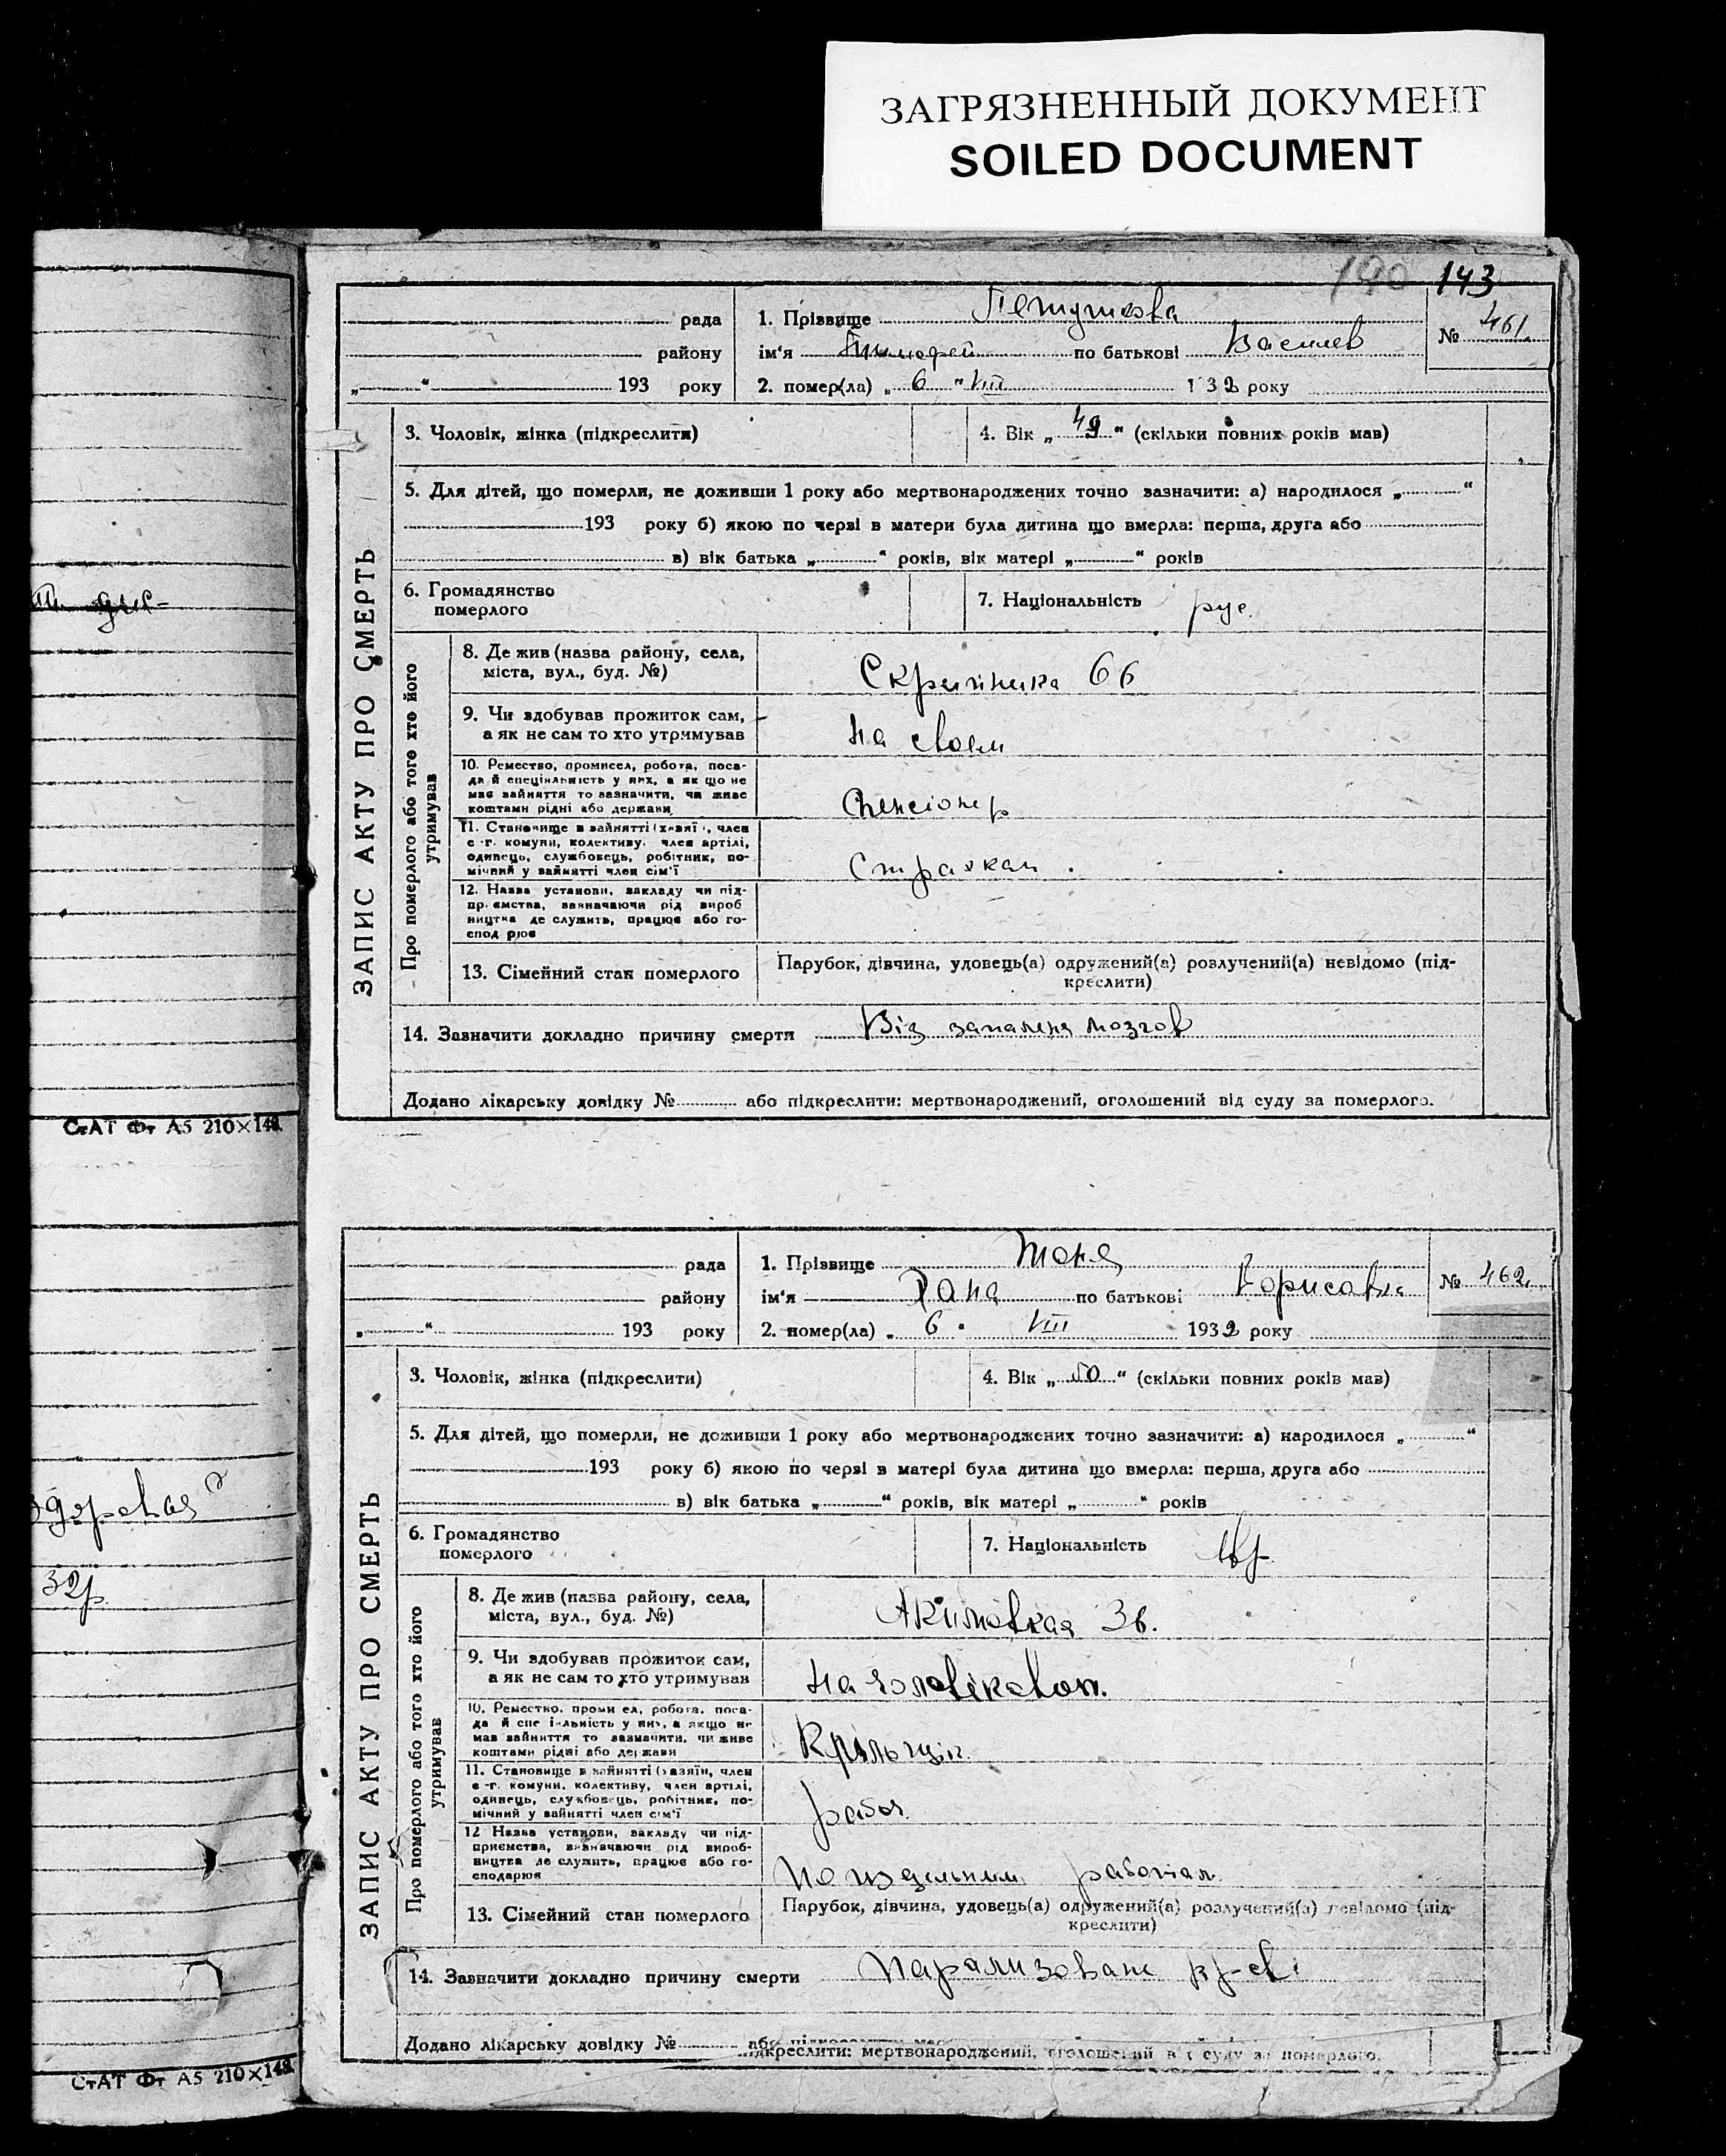 ЗАГРЯЗНЕННЫЙ ДОКУМЕНТ
SOILED DOCUMENT
190 143
рада
району
„ “ 193 року
1. Прізвище
ім'я Тимофей по батькові Василев
№ 461
2. помер(ла) „ 6 “ VIII 1932 року
ЗАПИС АКТУ ПРО СМЕРТЬ
3. Чоловік, жінка (підкреслити)
4. Вік „ 49 “ (скільки повних років мав)
5. Для дітей, що померли, не доживши 1 року або мертвонароджених точно зазначити: а) народилося „ “
193 року б) якою по черзі в матери була дитина що вмерла: перша, друга або
в) вік батька „ “ років, вік матері „ “ років
6. Громадянство
померлого
7. Національність рус.
Про померлого або того хто його
утримував
8. Де жив (назва району, села,
міста, вул., буд. №)
Скрипника 66
9. Чи здобував прожиток сам,
а як не сам то хто утримував
на своем
10. Ремество, промисел, робота, поса-
да й спеціяльність у них, а як що не
має зайняття то зазначити, чи живе
коштами рідні або держави
Пенсіонер
11. Становище в зайнятті (хазяї , член
с -г. комуни, колективу, член артілі,
одинець, службовець, робітник, по-
мічний у зайнятті член сім'ї
Страхкаси
12. Назва установи, закладу чи під-
пр. ємства, зазначаючи рід вироб
ництва де служить, працює або го-
спод рює
13. Сімейний стан померлого
Парубок, дівчина, удовець(а) одружений(а) розлучений(а) невідомо (під-
креслити)
14. Зазначити докладно причину смерти Від запаленя мозгов
Додано лікарську довідку № або підкреслити: мертвонароджений, оголошений від суду за померлого.
СтАТ Фт А5 210×148
рада
району
„ “ 193 року
1. Прізвище
ім'я по батькові Борисовна
№ 462
2. помер(ла) „ 6 “ VIII 1932 року
ЗАПИС АКТУ ПРО СМЕРТЬ
3. Чоловік, жінка (підкреслити)
4. Вік „ 50 “ (скільки повних років мав)
5. Для дітей, що померли, не доживши 1 року або мертвонароджених точно зазначити: а) народилося „ “
193 року б) якою по черзі в матері була дитина що вмерла: перша, друга або
в) вік батька „ “ років, вік матері „ “ років
6. Громадянство
померлого
7. Національність євр.
Про померлого або того хто його
утримував
8. Де жив (назва району, села,
міста, вул., буд. №)
Акимовкая 36.
9. Чи здобував прожиток сам,
а як не сам то хто утримував
На чоловіковом.
10. Ремество, проми ел, робота, поса-
да й спе іяльність у них, а якщо не
мав зайняття то зазначити, чи живе
коштами рідні або держави
11. Становище в зайнятті (хазяїн, член
с -г. комуни, колективу, член артілі,
одинець, службовець, робітник, по-
мічний у зайнятті член сім'ї
рабоч.
12 Назва установи, закладу чи під-
приємства, визначаючи рід вироб-
ництва де служить, працює або го-
сподарює
рабочіам
13. Сімейний стан померлого
Парубок, дівчина, удовець(а) одружений(а) розлучений(а) невідомо (під-
креслити)
14. Зазначити докладно причину смерти
Додано лікарську довідку № або
підкреслити: мертвонароджений, оголошений від суду за померлого.
32р.
СтАТ Фт А5 210×148